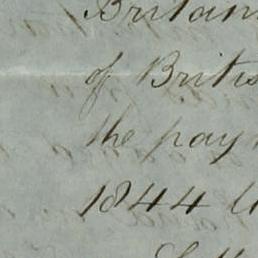 Britain
of British
the pay
1844